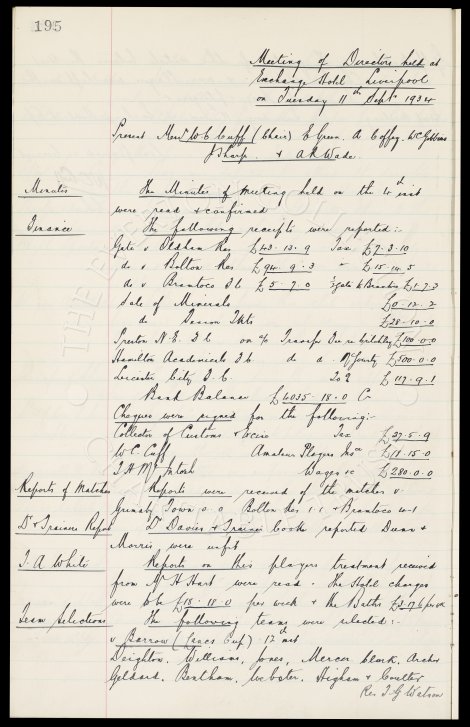 195
Meeting of Directors held at
Exchange Hotel Liverpool
on Tuesday 11th Sept 1934
Present Messrs W C Cuff (Chair) E Green. A Coffey. W C Gibbins
J Sharp. & A R Wade
Minutes The Minutes of Meeting held on the 4th inst
were read & confirmed
Finance The following receipts were reported:-
Gate v Oldham Res £43.13.9 Tax £7.3.10
do v Bolton Res £94.9.3 " £15.14.5
do v Branctoco £5.7.0 £1.7.3
Sale of Minerals £0.12.2
do Season Tkts £28.10.0
Preston N.E. F.C. on a/c Transfer £100.0.0
Hamilton Academicals do £500.0.0
Leicester City F.C. £117.9.1
Bank Balance £4035.18.0 Cr
Cheques were signed for the following:-
Collector of Customs & Excise Tax £27.5.9
W. C. Cuff Amateur Players Insce £18.15.0
T. H. McIntosh Wages &c £280.0.0
Reports of Matches Reports were received of the matches v
Grimsby Town 0.0 Bolton Res 1.1. &
Dr & Trainers Report Dr Davies & Trainers book reported Dunn &
Morris were unfit
T. A White Reports on this players treatment received
from Mr H Hart were read. The Hotel charges
were to be £18.18.0 per week & the Baths per wk
Team Selections The following teams were selected:-
v Barrow (Lancs Cup) 12th inst
Deighton. Williams, Jones, Mercer Clark. Archer
Geldard. Bentham. Webster. Higham & Coulter
Res J. G Watson